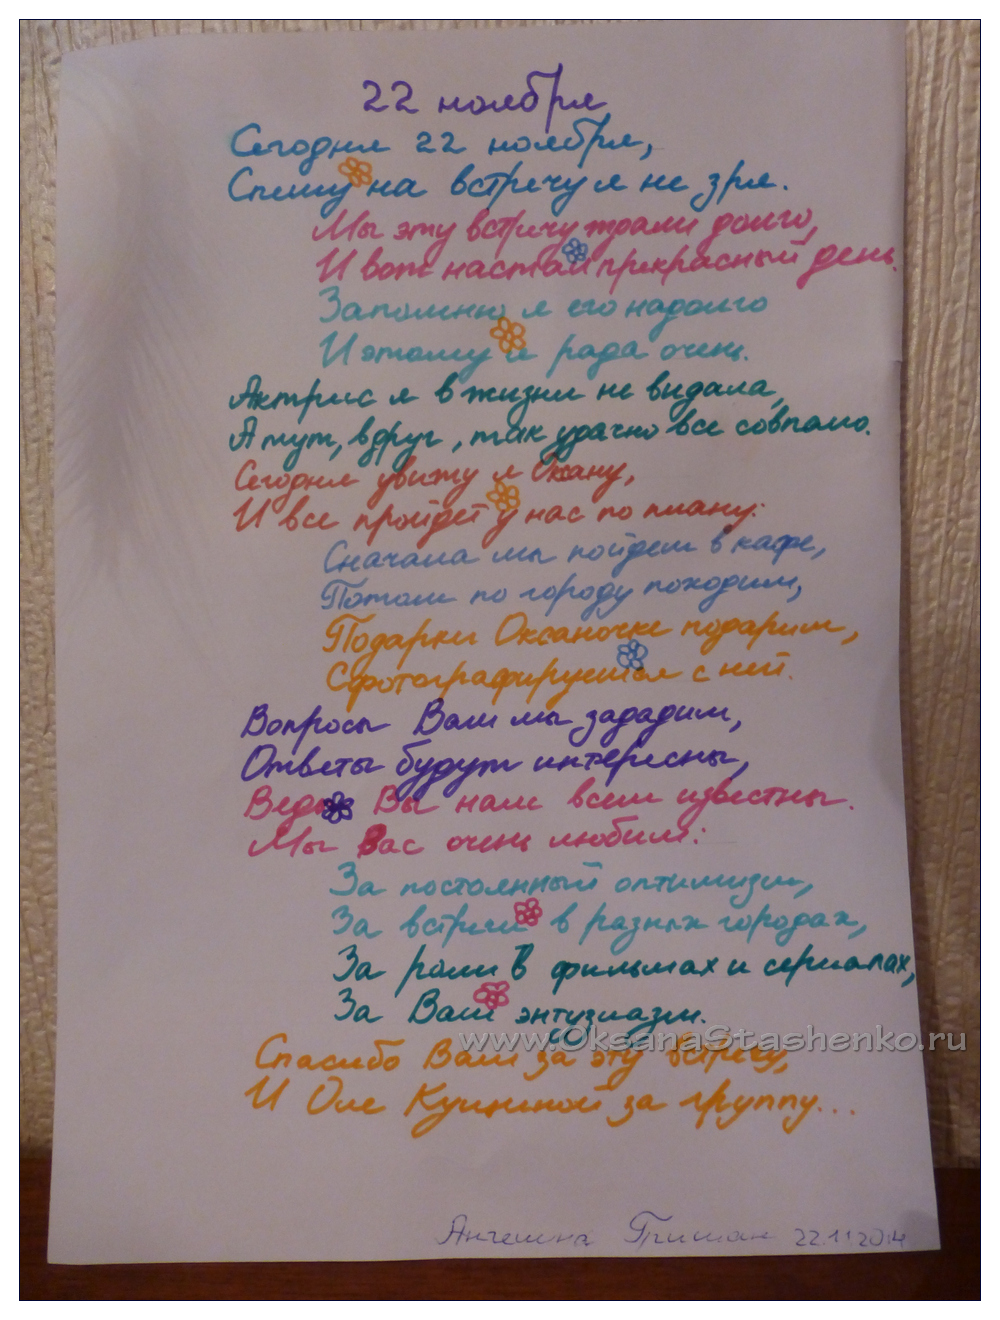 22 ноября
Сегодня 22 ноября,
Спешу на встречу я не зря.
Мы эту встречу ждали долго,
И вот настал прекрасный день.
Запомню я его надолго
И этому я рада очень.
Актрис я в жизни не видала,
А тут, вдруг, так удачно все совпало.
Сегодня увижу я Оксану,
И все пройдет у нас по плану:
Сначала мы пойдем в кафе,
Потом по городу походим,
Подарки Оксаночке подарим,
Сфотографируемся с ней.
Вопросы Вам мы зададим,
Ответы будут интересны,
Ведь Вы нам всем известны.
Мы Вас очень любим:
За постоянный оптимизм,
За встречи в разных городах,
За роли в фильмах и сериалах,
За Ваш энтузиазм.
www.OksanaStashenko.ru
Спасибо Вам за эту встречу,
И Оле за группу...
Ангелина 22.11.2014